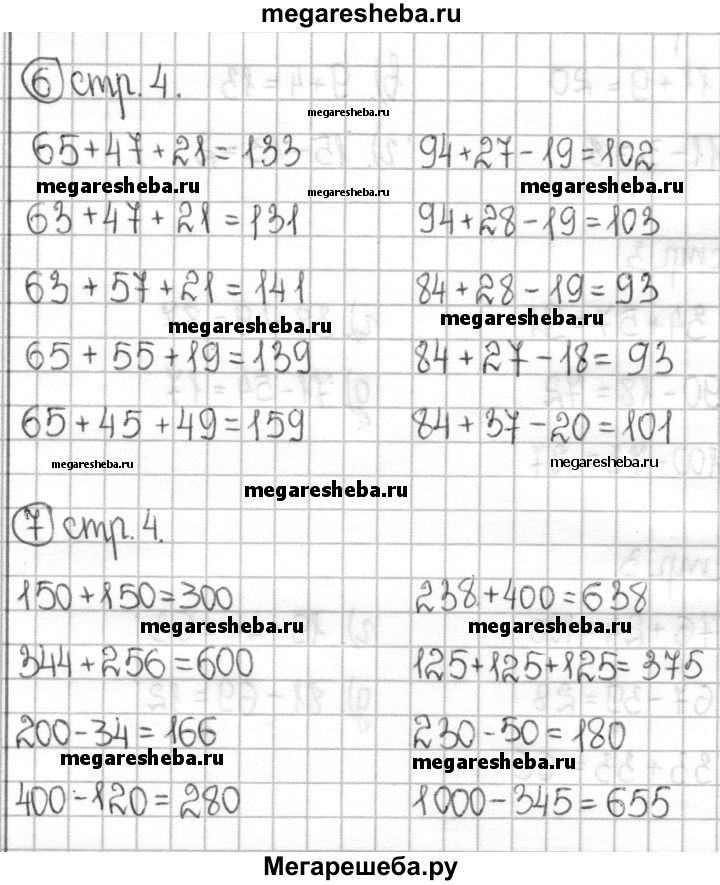 megaresheba.ru
6 стр. 4.
megaresheba.ru
65+47+21=133 94+27-19=102
megaresheba.ru megaresheba.ru megaresheba.ru
63+47+21=131 94+28-19=103
63+57+21=141 84+28-19=93
megaresheba.ru megaresheba.ru
65+55+19=139 84+27-18=93
65+45+49=159 84+37-20=101
megaresheba.ru megaresheba.ru
megaresheba.ru
7 стр. 4.
150+150=300 238+400=638
megaresheba.ru megaresheba.ru
344+256=600 125+125+125=375
200-34=166 230-50=180
megaresheba.ru megaresheba.ru
400-120=280 1000-345=655
Мегарешеба.ру